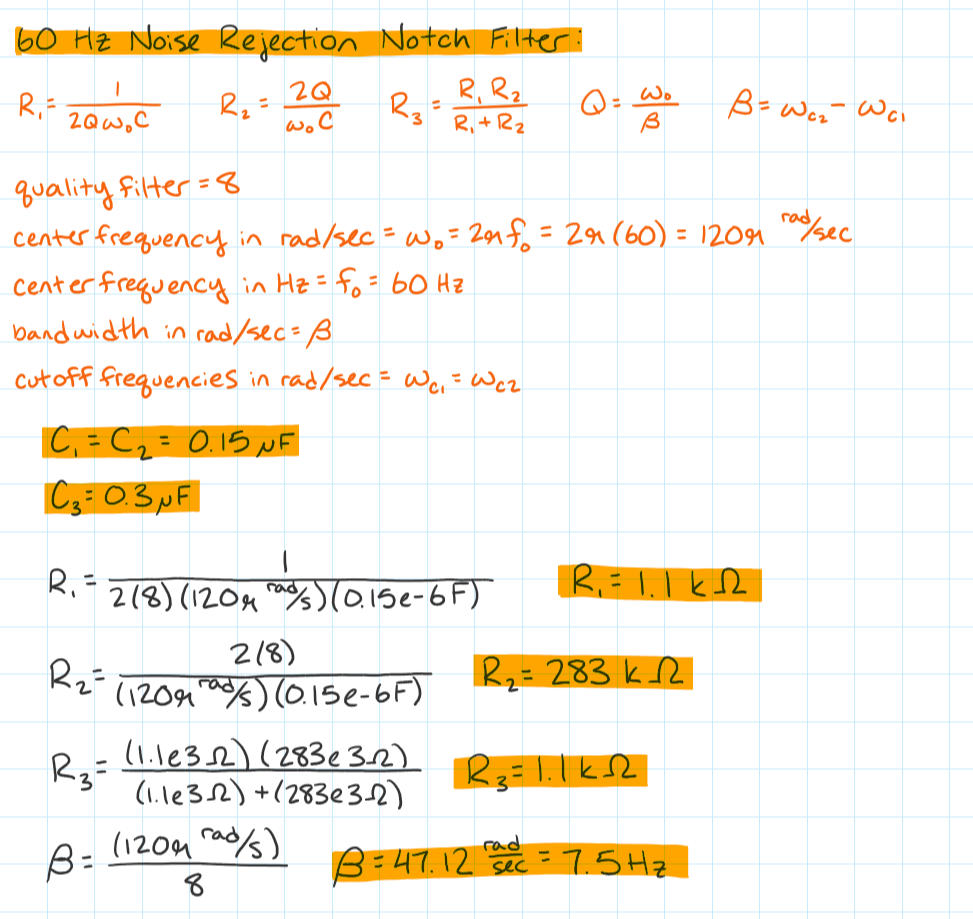 60 Hz Noise Rejection Notch Filter:
R₁ = 1/(2Qω₀C) R₂ = 2Q/(ω₀C) R₃ = R₁R₂/(R₁+R₂) Q = ω₀/β β = ωc₂ - ωc₁
quality filter = 8
center frequency in rad/sec = ω₀ = 2πf₀ = 2π(60) = 120π rad/sec
center frequency in Hz = f₀ = 60 Hz
bandwidth in rad/sec = β
cutoff frequencies in rad/sec = ωc₁ = ωc2
C₁ = C₂ = 0.15 μF
C₃ = 0.3 μF
R₁ = 1/(2(8)(120π rad/s)(0.15e-6F)) R₁ = 1.1 kΩ
R₂ = 2(8)/((120π rad/s)(0.15e-6F)) R₂ = 283 kΩ
R₃ = (1.1e3Ω)(283e3Ω)/((1.1e3Ω)+(283e3Ω)) R₃ = 1.1 kΩ
β = (120π rad/s)/8 β = 47.12 rad/sec = 7.5 Hz